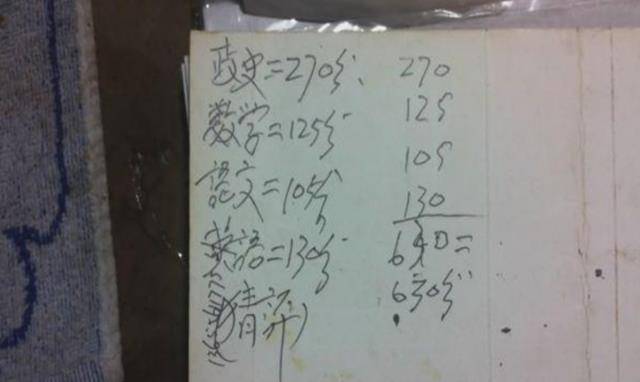 政史=270分、 270
数学=125分 125
語文=105分 105
英語=130分 130
630分